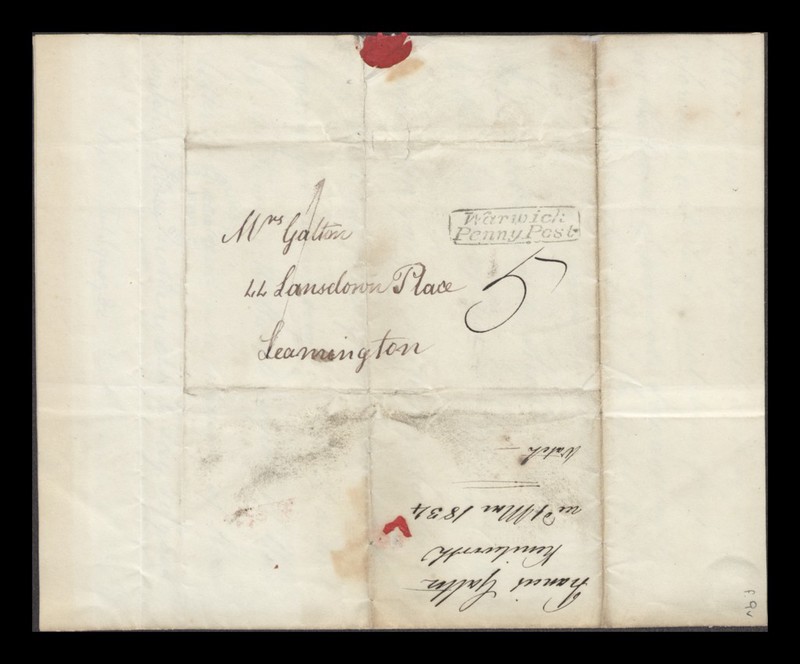 Mrs Galton
44 Lansdown Place
Leamington
Warwick
Penny Post
5
Francis Galton
Kenilworth
Mar 1834
Watch —